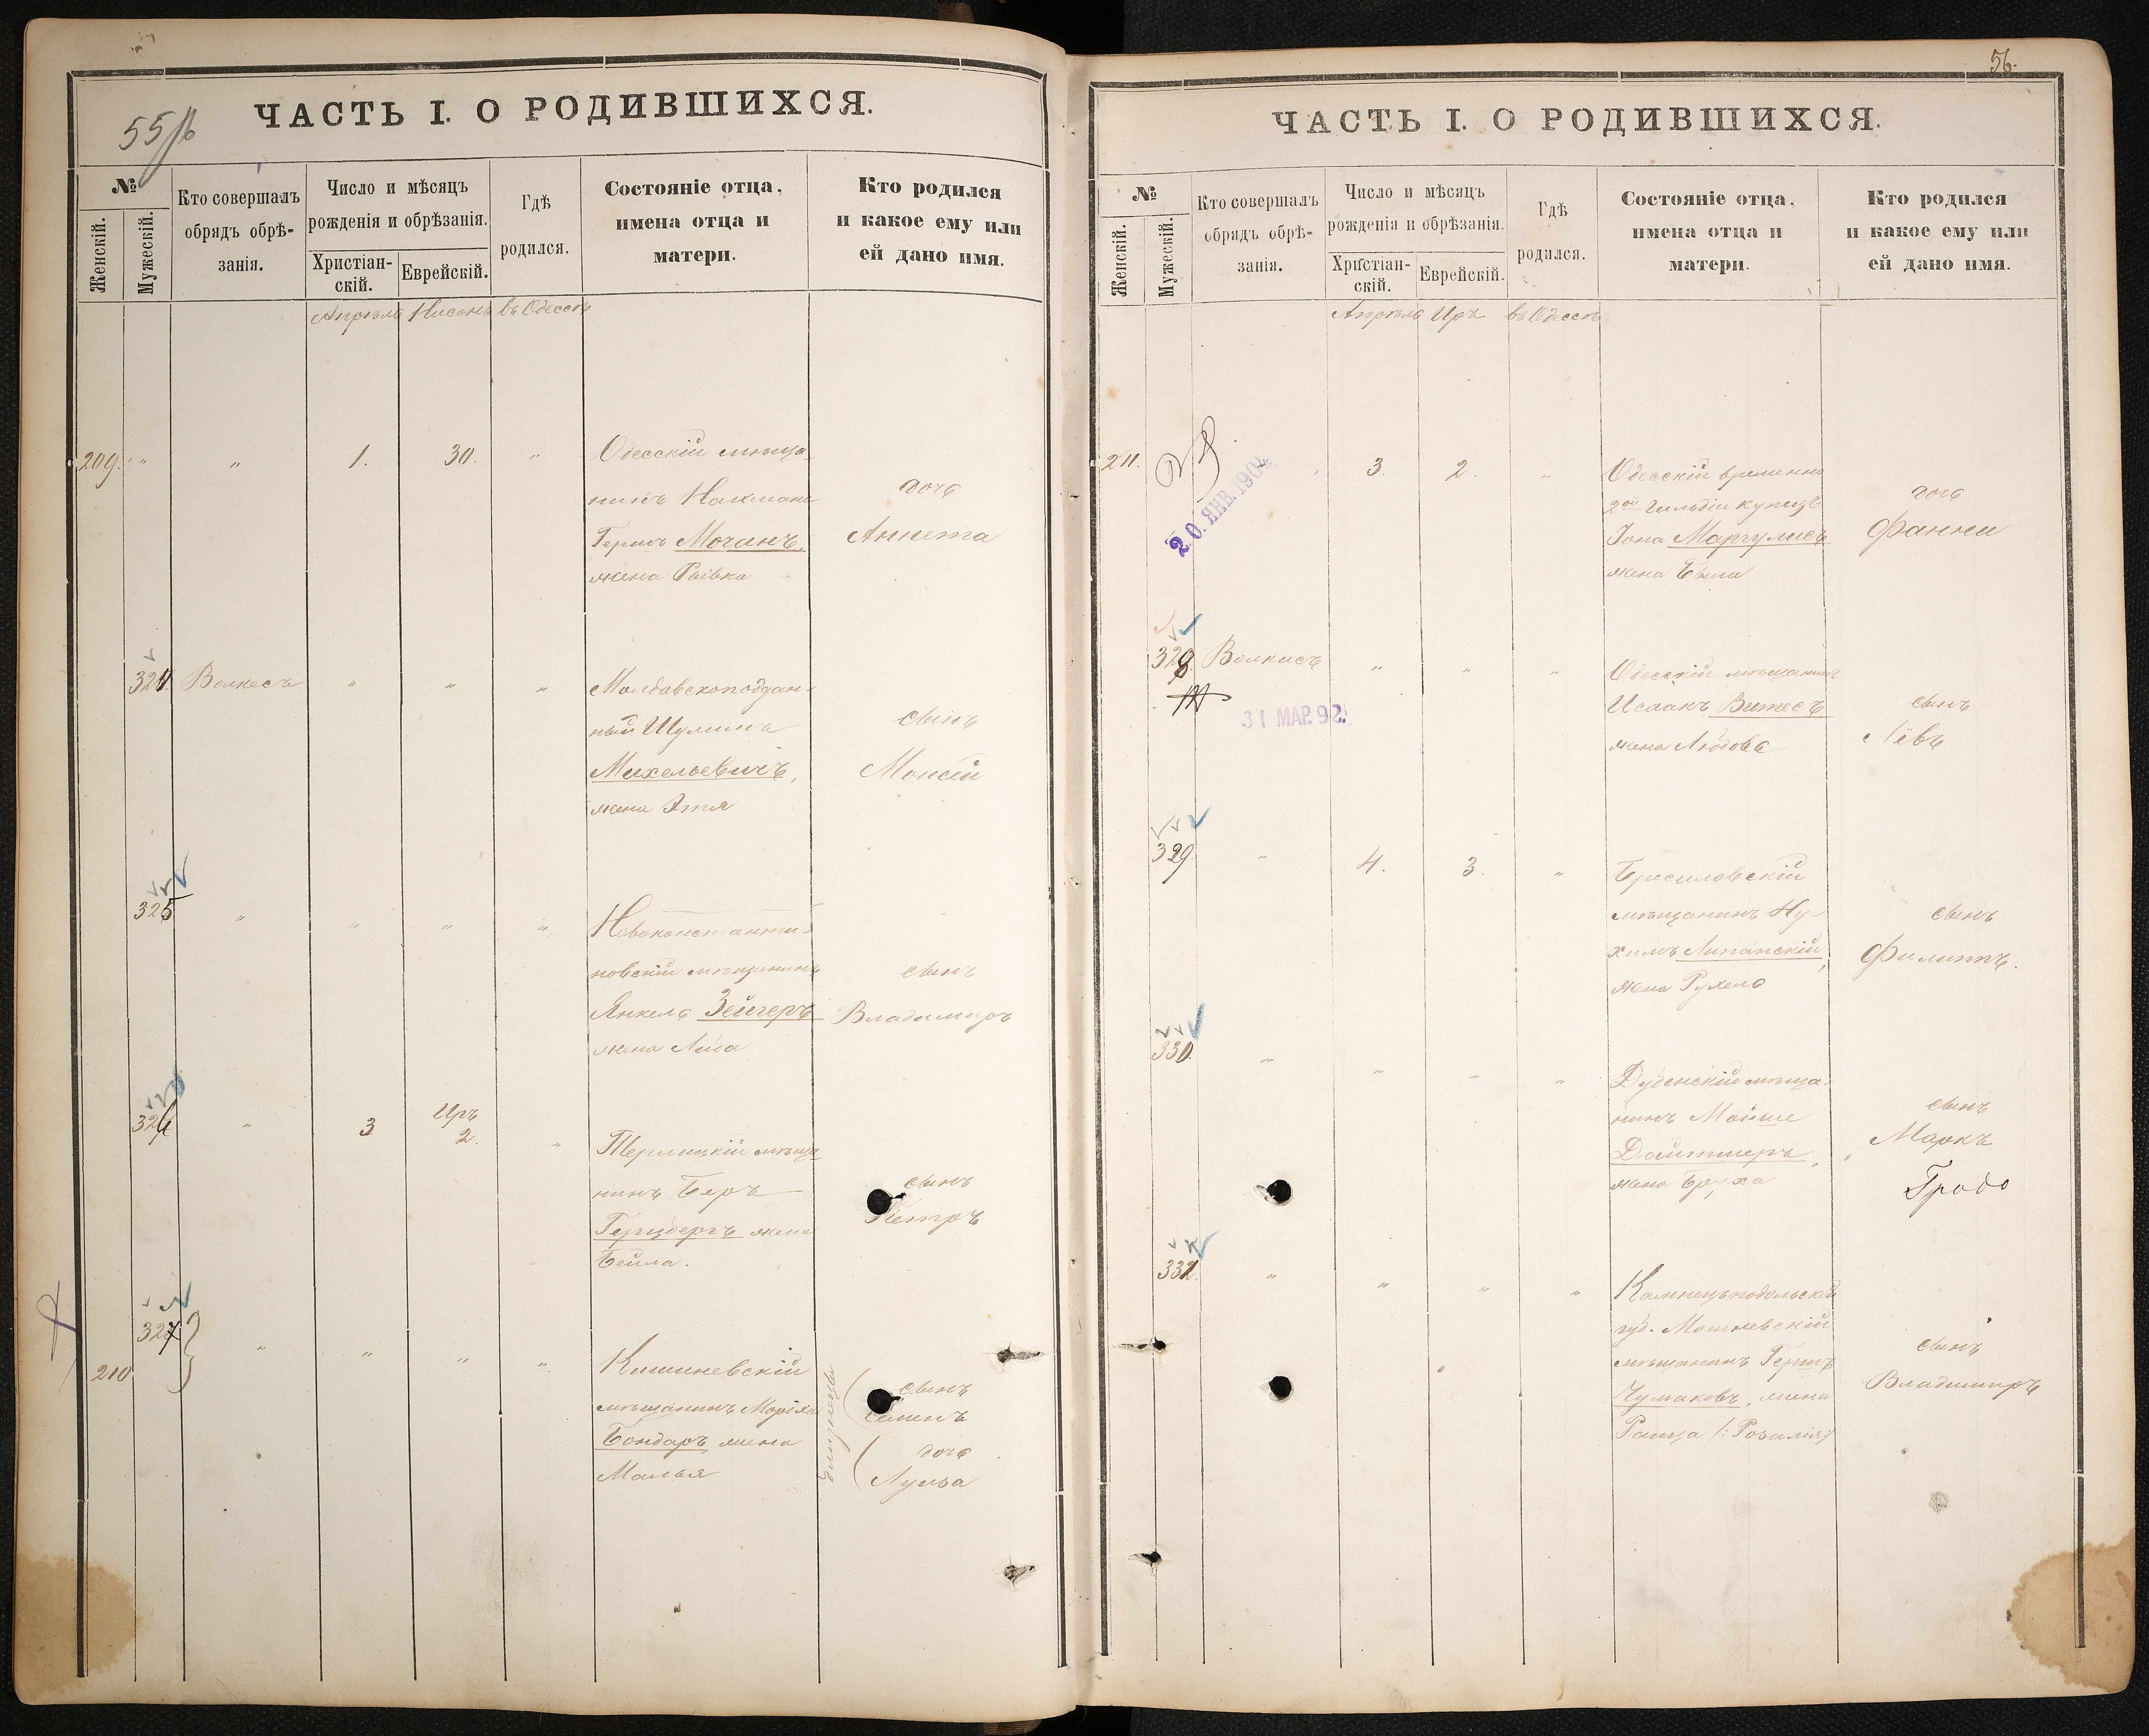 55/б
ЧАСТЬ I. О РОДИВШИХСЯ.
№
Женскій.
Мужескій.
Кто совершалъ
обрядъ обрѣ-
занія.
Число и мѣсяцъ
рожденія и обрѣзанія.
Христіан-
скій.
Еврейскій.
Гдѣ
родился.
Состояніе отца,
имена отца и
матери.
Кто родился
и какое ему или
ей дано имя.
Апрѣль Нисонъ въ Одессѣ
209. " " 1. 30. "
Одесскій мѣща-
нинъ Нахмань
Гершъ Моганъ,
жена Рывка
дочь
Аннета
324. Волкесъ " " "
Молдавскоподдан-
ный Шулимъ
Михелевичъ,
жена Этля
сынъ
Моисей
325 " " " "
Новоконстанти-
новскій мѣщанинъ
Янкель Зейгеръ
жена Лиа
сынъ
Владимиръ
326 " 3 Иръ 2. "
Терлицкій мѣща
нинъ Беръ
Герцбергъ жена
Бейла.
сынъ
Петръ
327
210
" " " "
Кишиневскій
мѣщанинъ
Бондаръ, жена
Малья
близнецы
сынъ
Семенъ
дочь
Луиза
56.
ЧАСТЬ I. О РОДИВШИХСЯ.
№
Женскій.
Мужескій.
Кто совершалъ
обрядъ обрѣ-
занія.
Число и мѣсяцъ
рожденія и обрѣзанія.
Христіан-
скій.
Еврейскій.
Гдѣ
родился.
Состояніе отца,
имена отца и
матери.
Кто родился
и какое ему или
ей дано имя.
Апрѣль Иръ въ Одессѣ
211. 3. 2. "
20. ЯНВ. 1904
Одесскій временно
2ой гильдіи купецъ
Іона Маргулисъ
жена Бейла
дочь
Фанни
328 Волкисъ " " "
31 МАР. 92.
Одесскій мѣщанинъ
Исаакъ Витесъ
жена Любовь
сынъ
Левъ
329 " 4. 3. "
мѣщанинъ Ну-
химъ Липанскій,
жена Рухель
сынъ
Филиппъ.
330. " " " "
Дубенскій мѣща-
нинъ Мойше
Дайтшеръ,
жена Бруха
сынъ
Маркъ
Гродо
332. " " " "
Каменецъподольской
губ.
мѣщанинъ Гершъ
Чумаковъ, жена
Раица (: Розалія:)
сынъ
Владимиръ